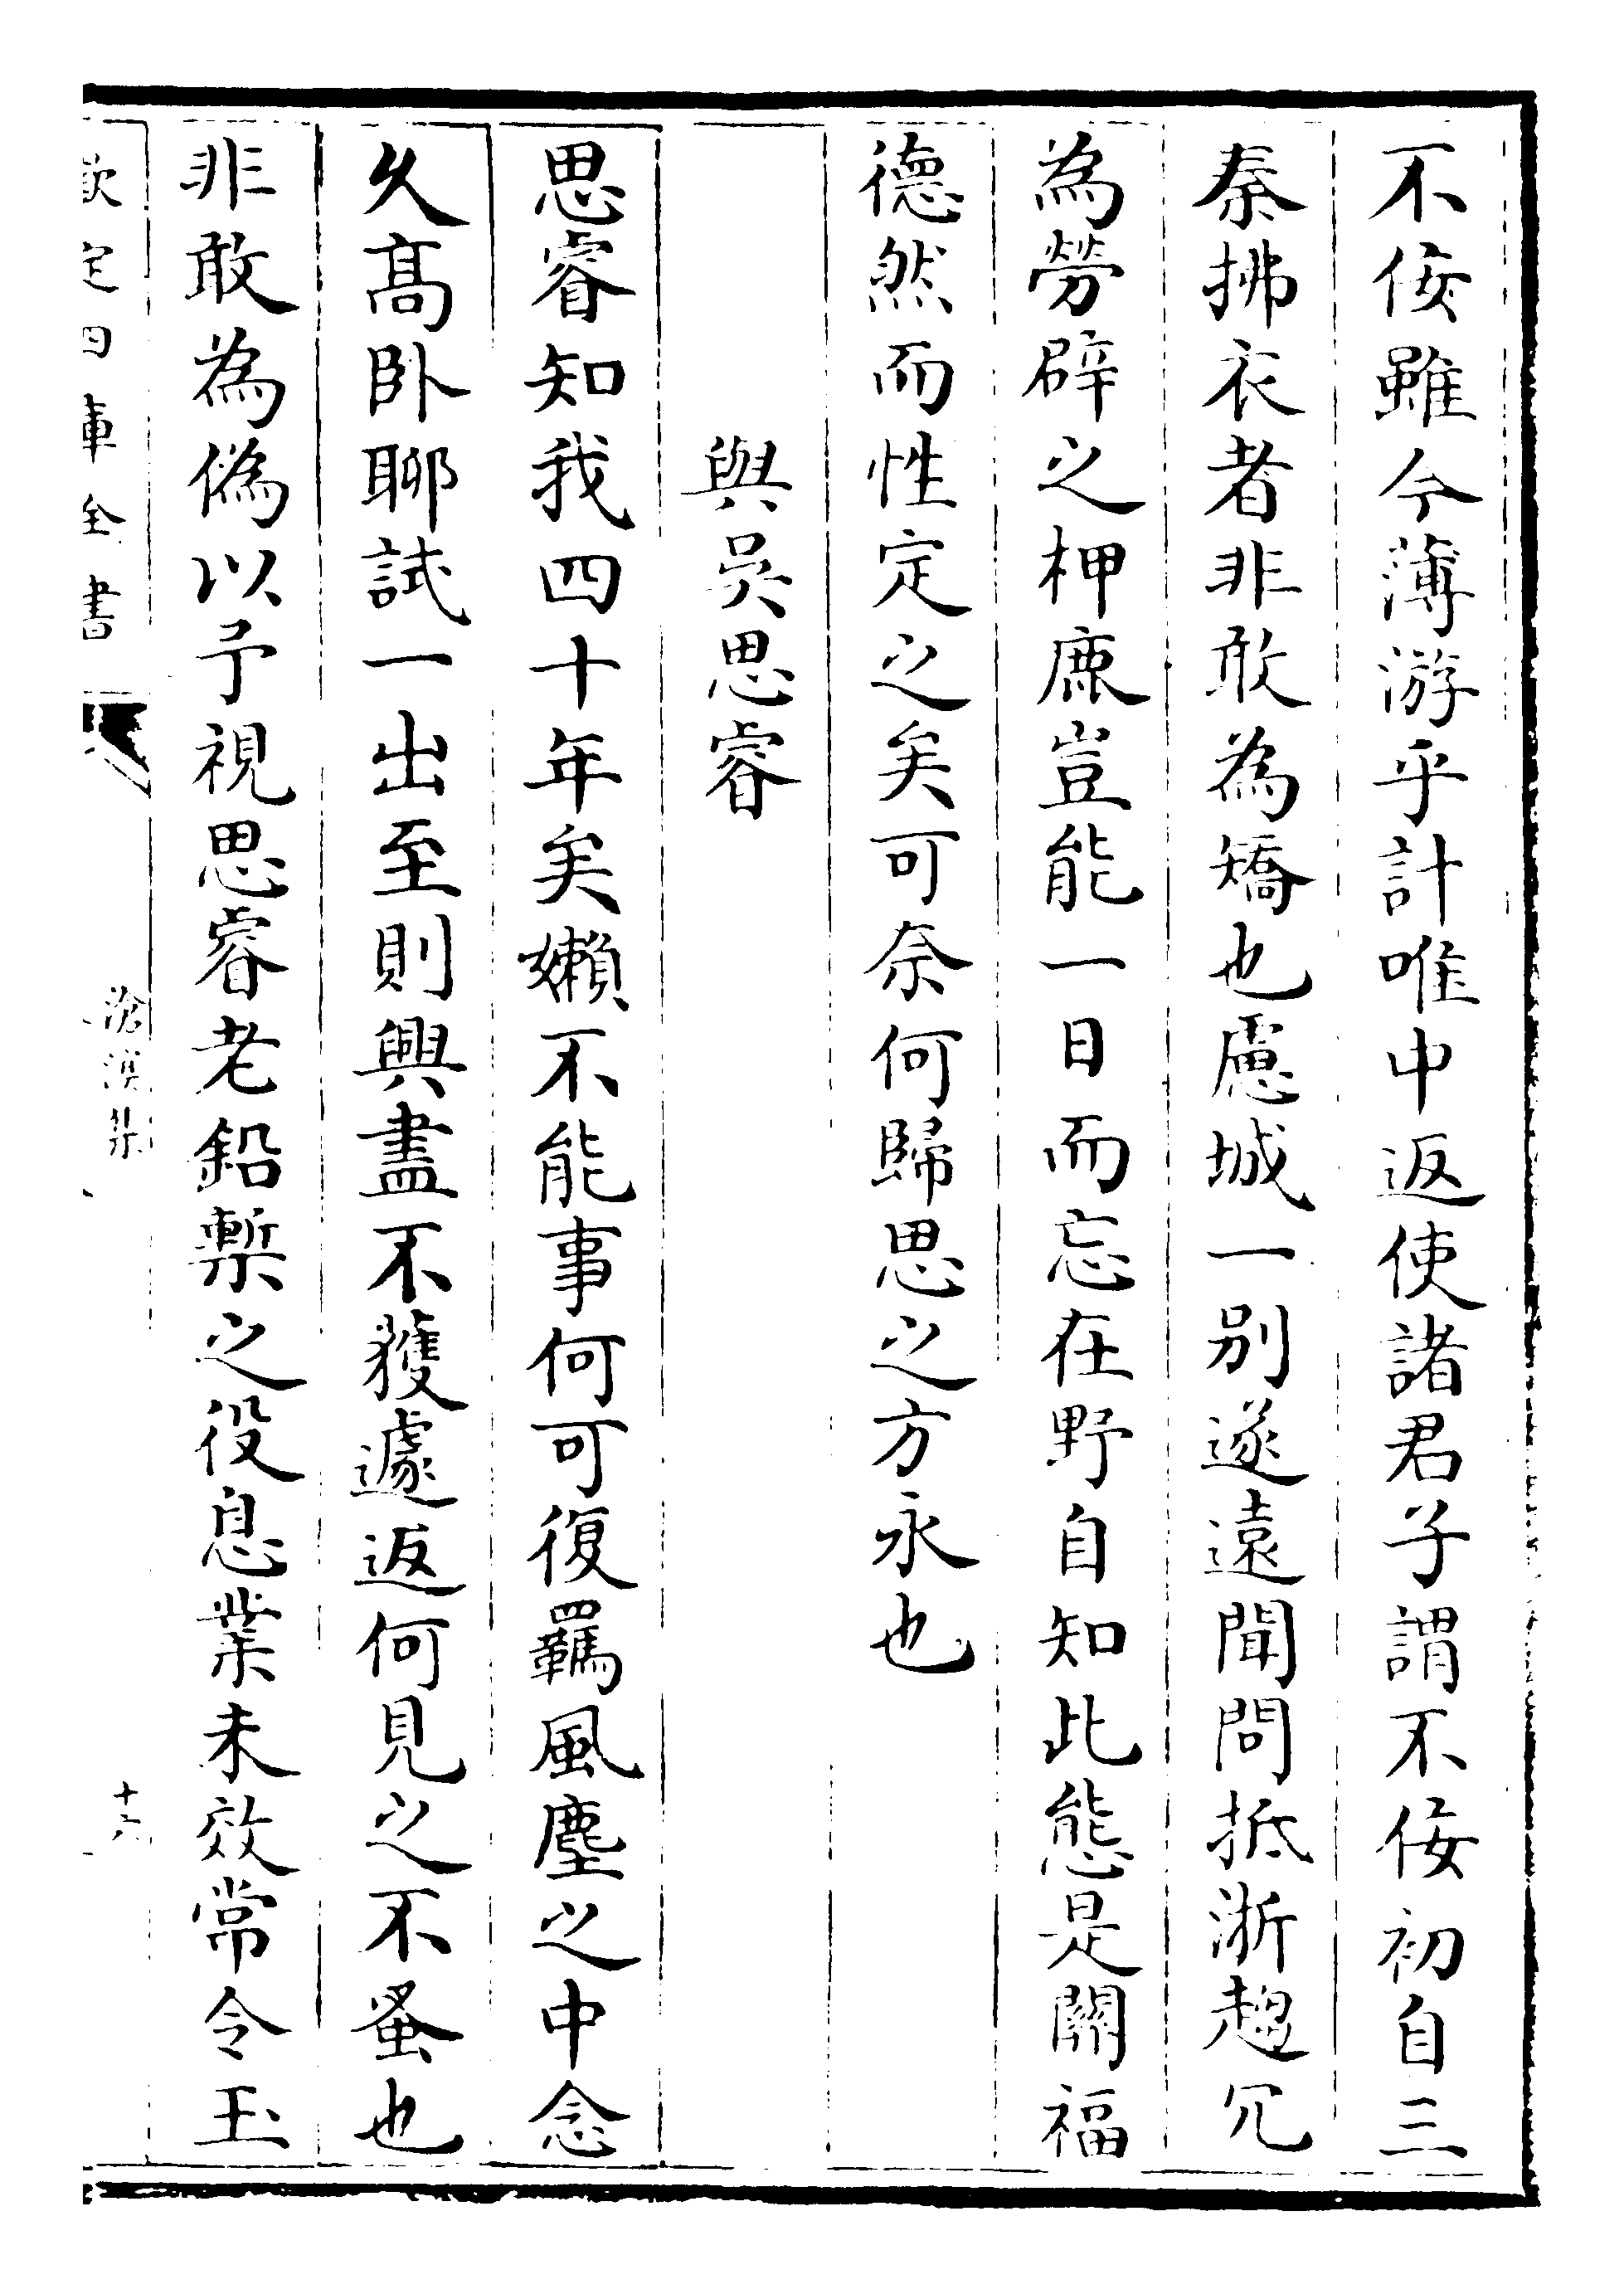 不佞雖今薄游乎計唯中返使諸君子謂不佞初自三
秦拂衣者非敢為矯也慮城一别遂遠聞問抵浙趨冗
為勞辟之柙鹿豈能一日而忘在野自知此態是關福
德然而性定之矣可奈何歸思之方永也
與吳思睿
思睿知我四十年矣嬾不能事何可復羈風塵之中念
久髙卧聊試一出至則興盡不獲遽返何見之不蚤也
非敢為偽以予視思睿老鉛槧之役息業未效常令玉
欽定四庫全書
滄溟集
十六